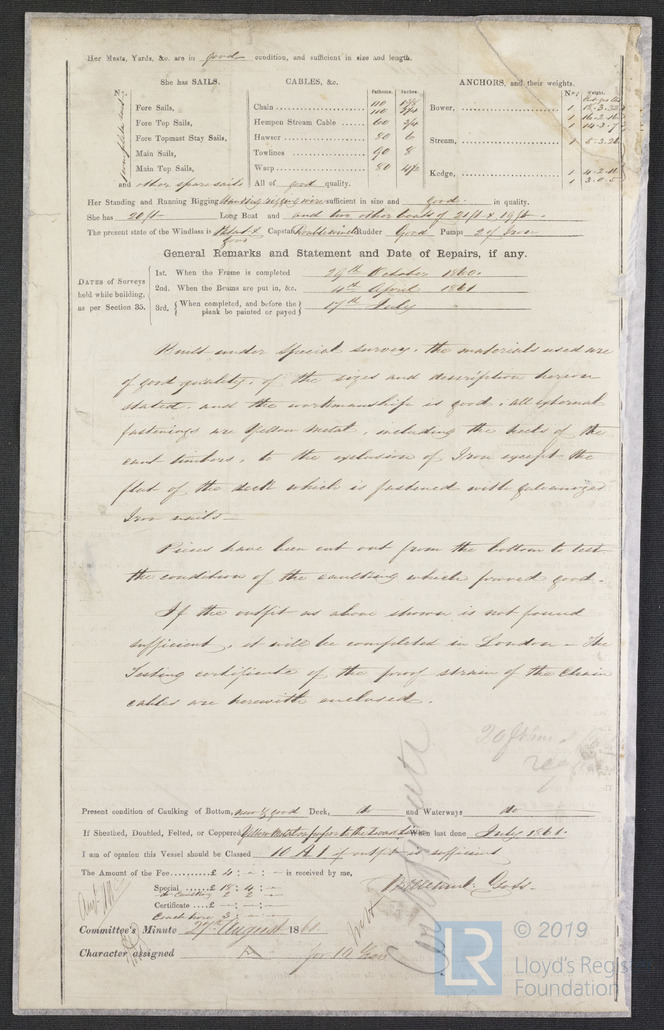 Her Masts, Yards, &c. are in good condition, and sufficient in size and length.
She has SAILS.
CABLES, &c.
Fathoms.
Inches.
ANCHORS, and their weights.
Nos.
Weight.
Fore Sails,
Chain
110
110
Bower,
1
1
1
Fore Top Sails,
Hempen Stream Cable
60
3/4
Fore Topmast Stay Sails,
Hawser
80
6
Stream,
1
Main Sails,
Towlines
90
8
Main Top Sails,
Warp
80
4 1/2
Kedge,
1
1
and other spare sails
All of good quality.
Her Standing and Running Rigging sufficient in size and good in quality.
She has 20 ft Long Boat and and two other boats of 21 ft & 19 ft
The present state of the Windlass is Patent & Good Capstan Rudder Good Pumps 2 of Iron
General Remarks and Statement and Date of Repairs, if any.
DATES of Surveys held while building, as per Section 35.
1st. When the Frame is completed 29th October 1860.
2nd. When the Beams are put in, &c. 4th April 1861
3rd. { When completed, and before the plank be painted or payed } 17th July "
Built under Special survey, the materials used are
of good quality, of the sizes and description hereon
stated, and the workmanship is good, all external
fastenings are Yellow Metal, including the heels of the
cant timbers, to the exclusion of Iron except the
flat of the deck which is fastened with Galvanized
Iron nails —
Pieces have been cut out from the bottom to test
the condition of the caulking which proved good.
If the outfit as above shown is not found
sufficient, it will be completed in London — The
Testing certificate of the proof strain of the Chain
cables are herewith enclosed.
Present condition of Caulking of Bottom, new & good Deck, do and Waterways do
If Sheathed, Doubled, Felted, or Coppered Yellow Metal on paper to the When last done July 1861.
I am of opinion this Vessel should be Classed 10 A 1 if outfit is sufficient
The Amount of the Fee £ 4 : - : - is received by me,
Special £ 18 : 4 : -
Certificate £ - : - : -
Committee's Minute 27th August 1861.
Character assigned A1 for 10 Years
© 2019
LR
Lloyd's Register
Foundation